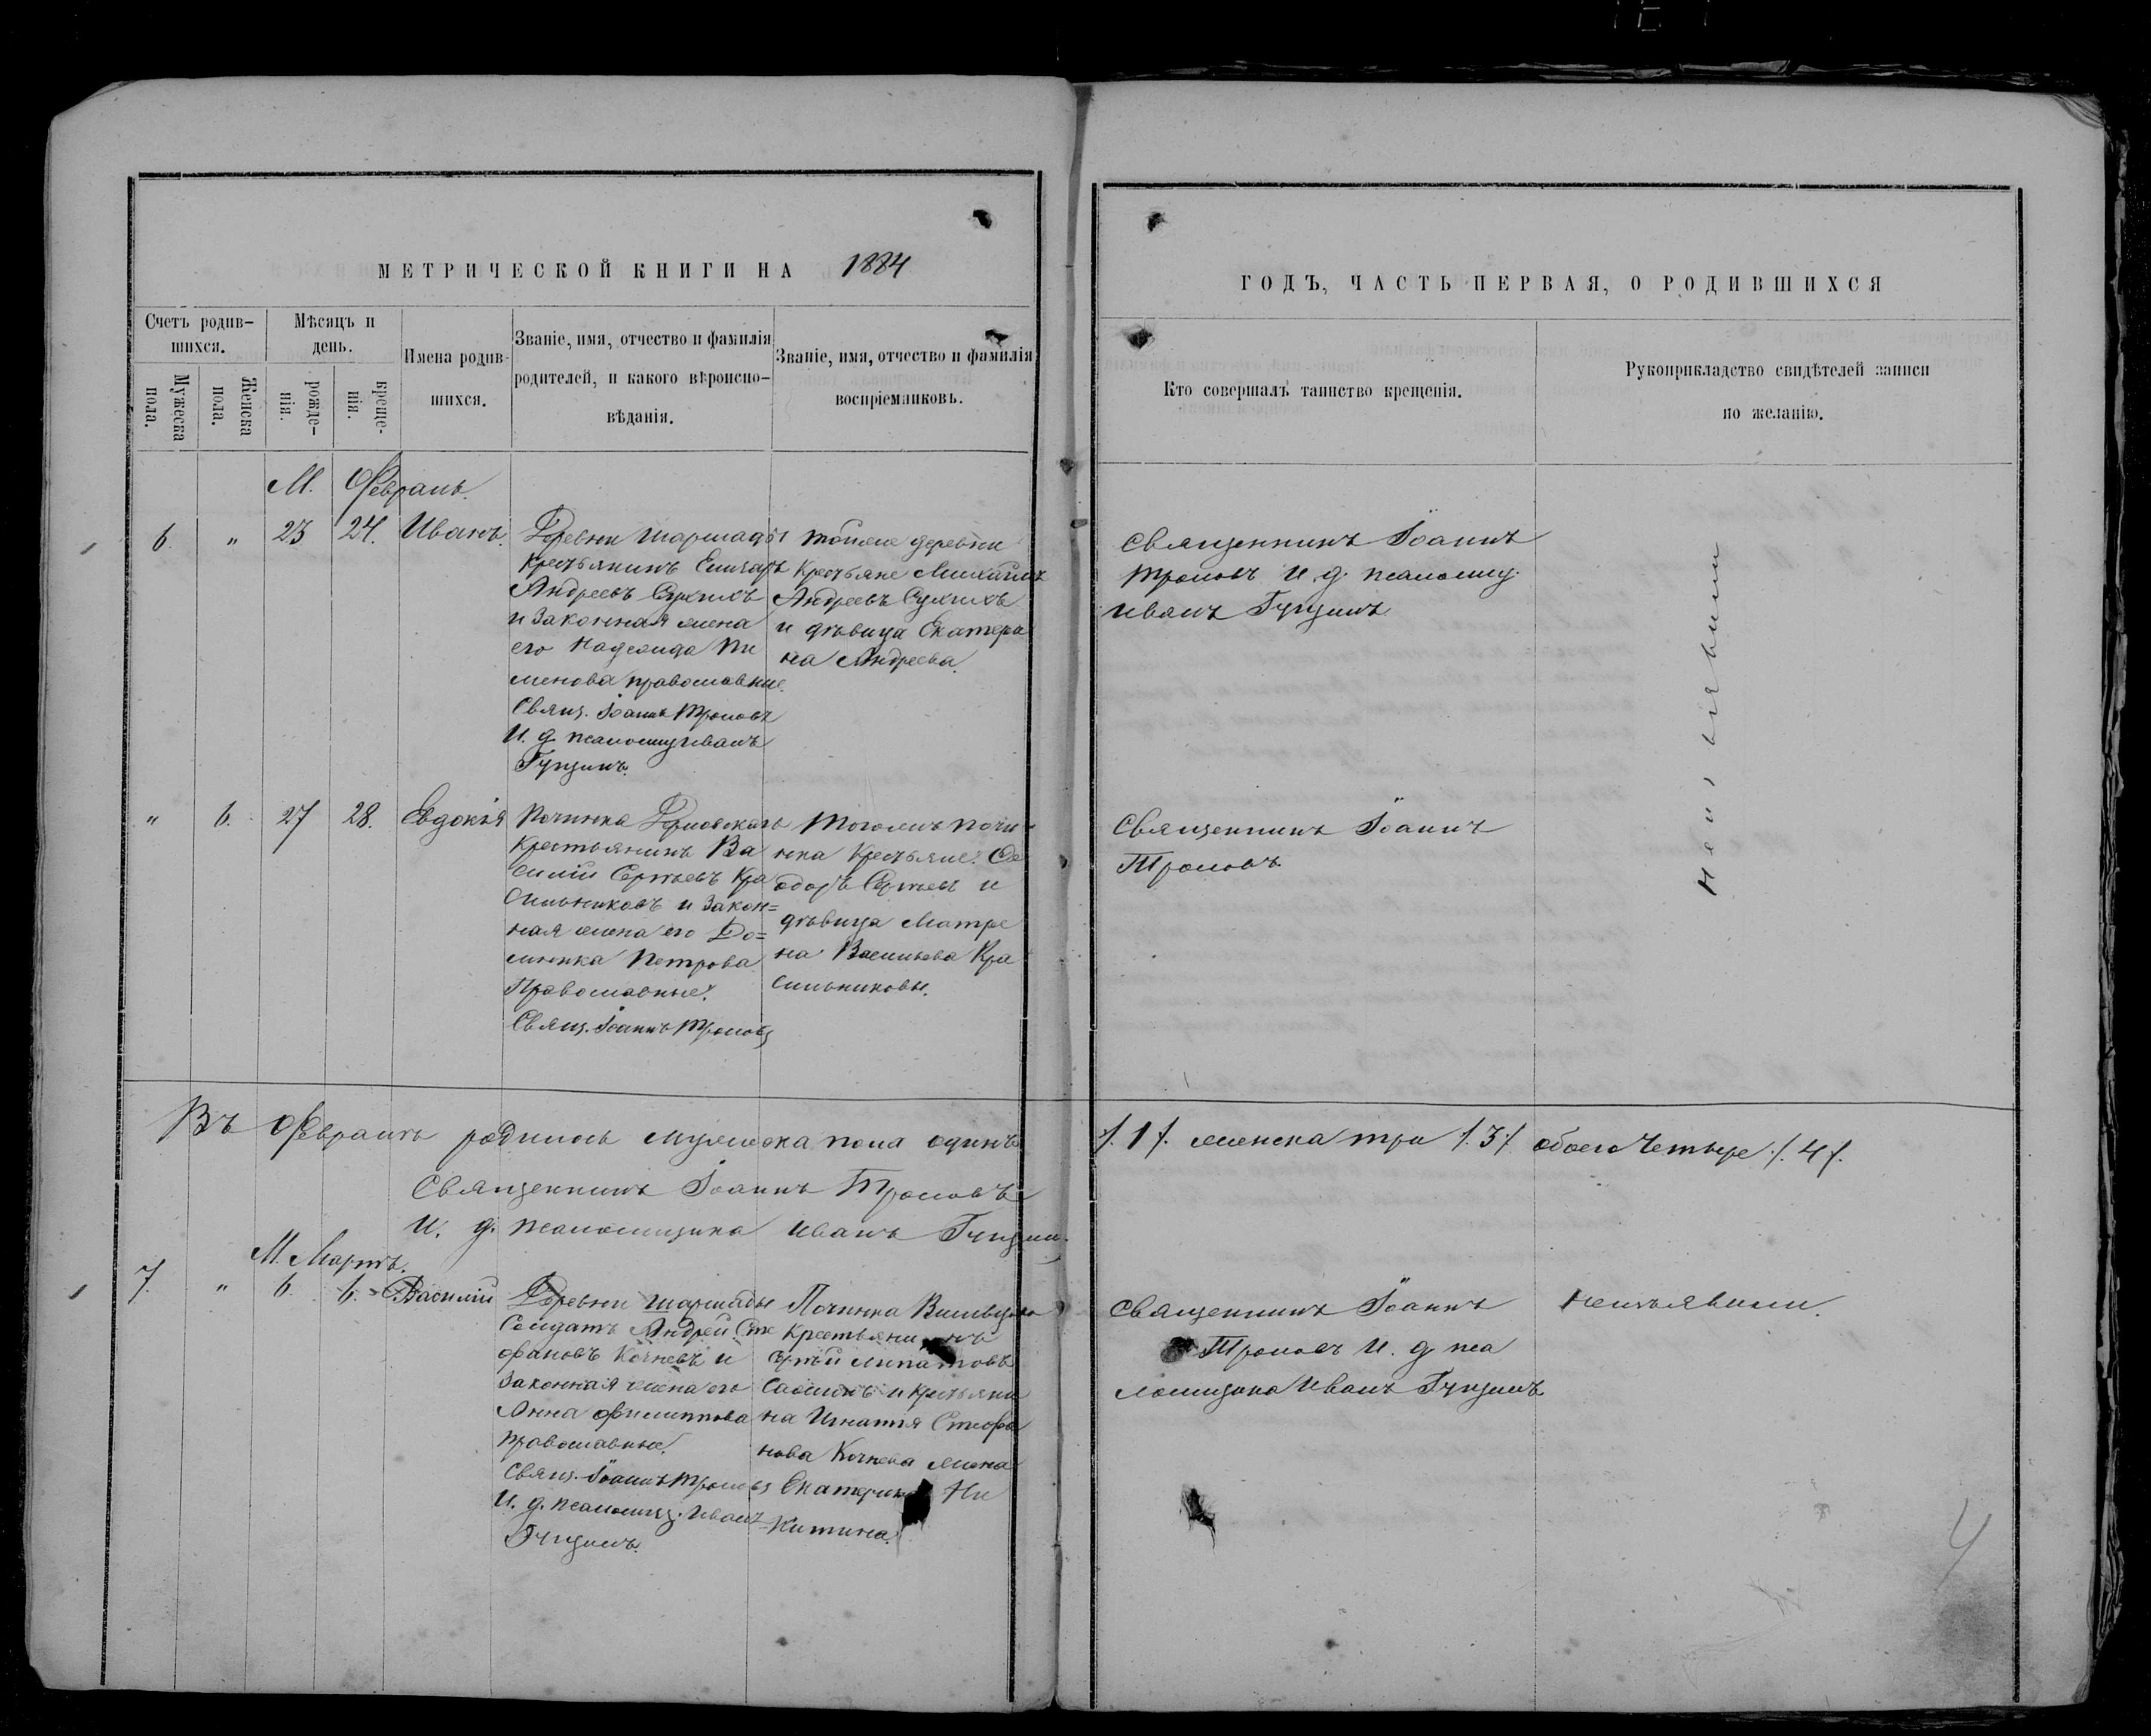 МЕТРИЧЕСКОЙ КНИГИ НА 1884
ГОДЪ, ЧАСТЬ ПЕРВАЯ, О РОДИВШИХСЯ
Счетъ родив-
шихся.
Мужеска
пола.
Женска
пола.
Мѣсяцъ и
день.
рожде-
нія.
креще-
нія.
Имена родив-
шихся.
Званіе, имя, отчество и фамилія
родителей, и какого вѣроиспо-
вѣданія.
Званіе, имя, отчество и фамилія
воспріемниковъ.
Кто совершалъ таинство крещенія.
Рукоприкладство свидѣтелей записи
по желанію.
М. Февраль.
6. " 23 24. Иванъ.
Деревни Шаршады
Крестьянинъ
Андреевъ Сухихъ
и законная жена
его Надежда Пи
менова православные.
Свящ. Іоаннъ
И. д. псаломщ Иванъ
тойже деревни
Крестьяне Михаилъ
Андреевъ Сухихъ
и дѣвица Екатери
на Андреева.
Священникъ Іоаннъ
И. д. псаломщ.
Иванъ
Неизъявили
" 6. 27 28. Евдокія
Починка
Крестьянинъ Ва
силій Сергѣевъ Кра
сильниковъ и закон=
ная жена его До=
мника Петрова
Православные.
Свящ. Іоаннъ
Тогожъ почи
нка Крестьяне: Ѳе
одоръ Сергѣевъ и
дѣвица Матре
на Васильева Кра
сильниковы.
Священникъ Іоаннъ
Въ Февралѣ родилось мужеска пола одинъ ./.1./. женска три ./.3./. обоего четыре ./.4./.
Священникъ Іоаннъ
И. д. псаломщика Иванъ
М. Мартъ.
7. " 6. 6. Василій
Деревни Шаршады
Солдатъ Андрей Сте
фановъ Кочневъ и
законная жена его
Анна Филиппова
православные.
Свящ. Іоаннъ
И. д. псаломщ. Иванъ
Починка
Крестьянинъ
Сергѣй Липатовъ
и крестьяни
на Игнатія Стефа
нова Кочнева жена
Екатерина Ни
китина.
Священникъ Іоаннъ
И. д. пса
ломщика Иванъ
Неизъявили.
4